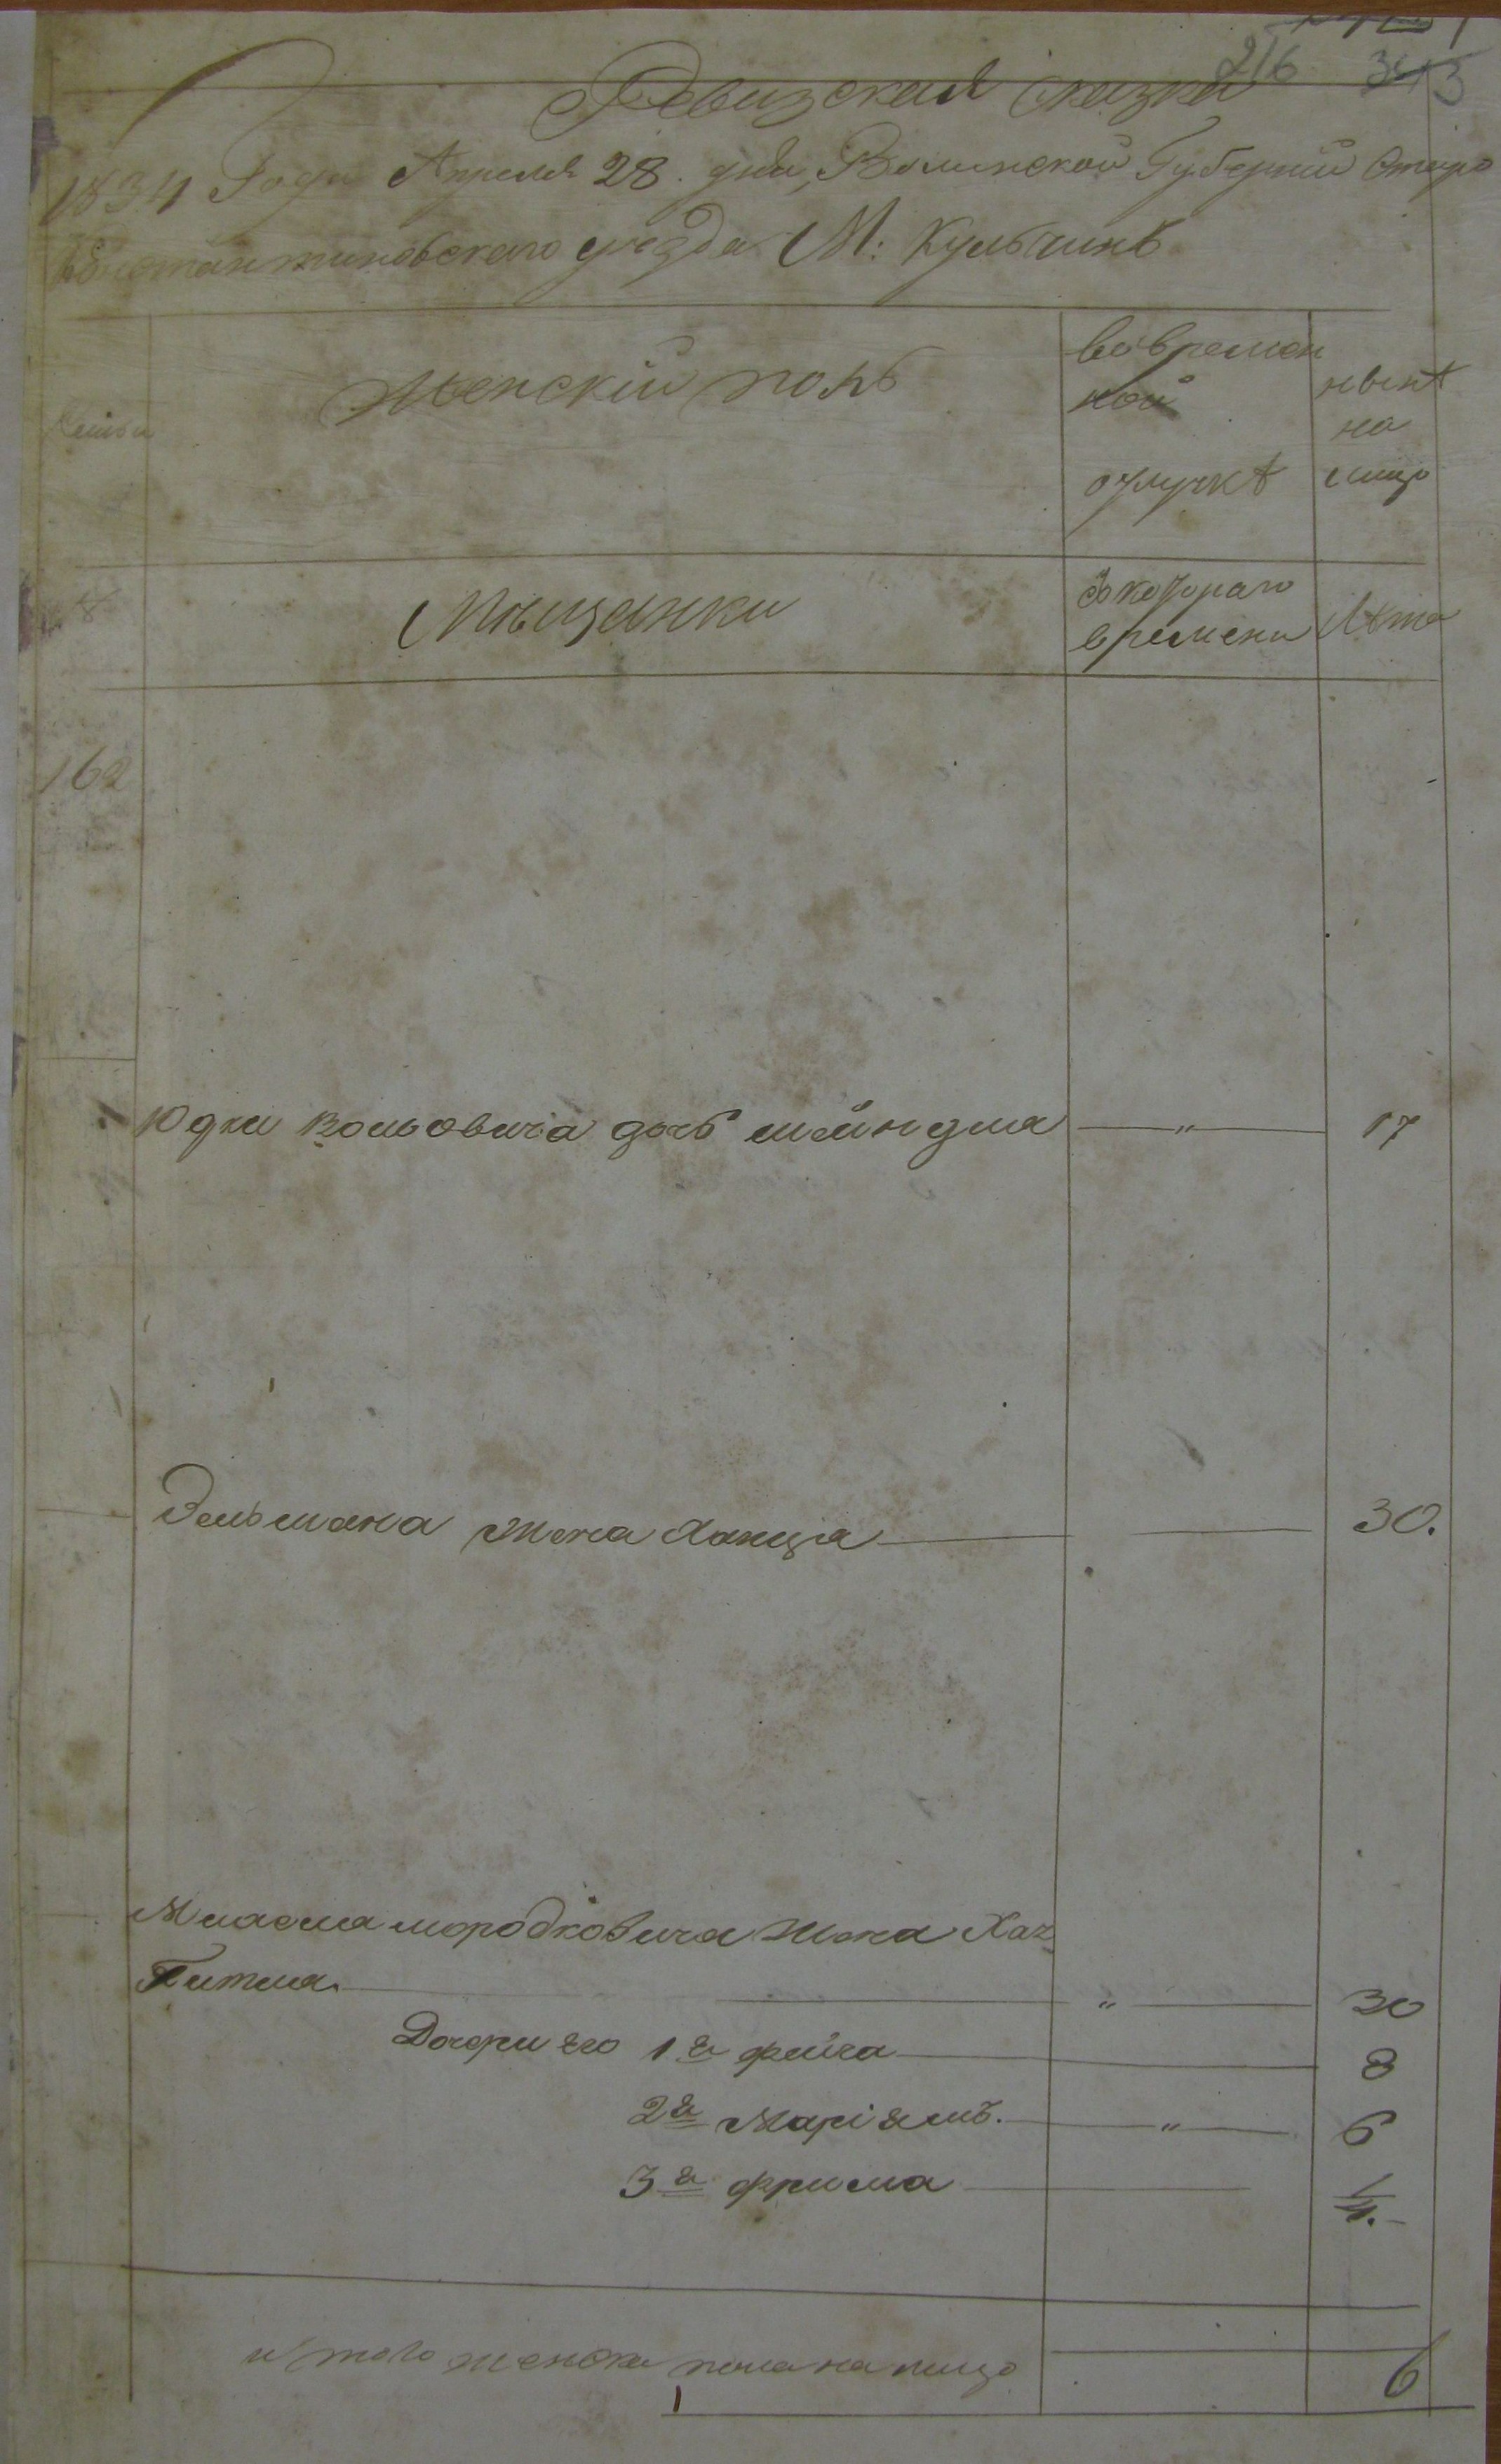 216 343
Ревизская сказка
1834 Года Апреля 28. дня, Волынской Губернии Старо
Константиновского уезда М: Кульчинъ
Семьи
Женскій полъ
во времен
ной
отлучкѣ
нынѣ
на
лицо
№
Мѣщанки
Съ котораго
времени
Лѣта
162
Юдки Вольовича дочь Шейндля — " — 17
Зельмана жена Ханця — 30.
мордковича жена Хая
Гитля — " — 30
Дочери его 1я фейга — 8
2я Маріямъ. — " — 6
3я фрима — 1/4.
и того женска пола на лицо
6